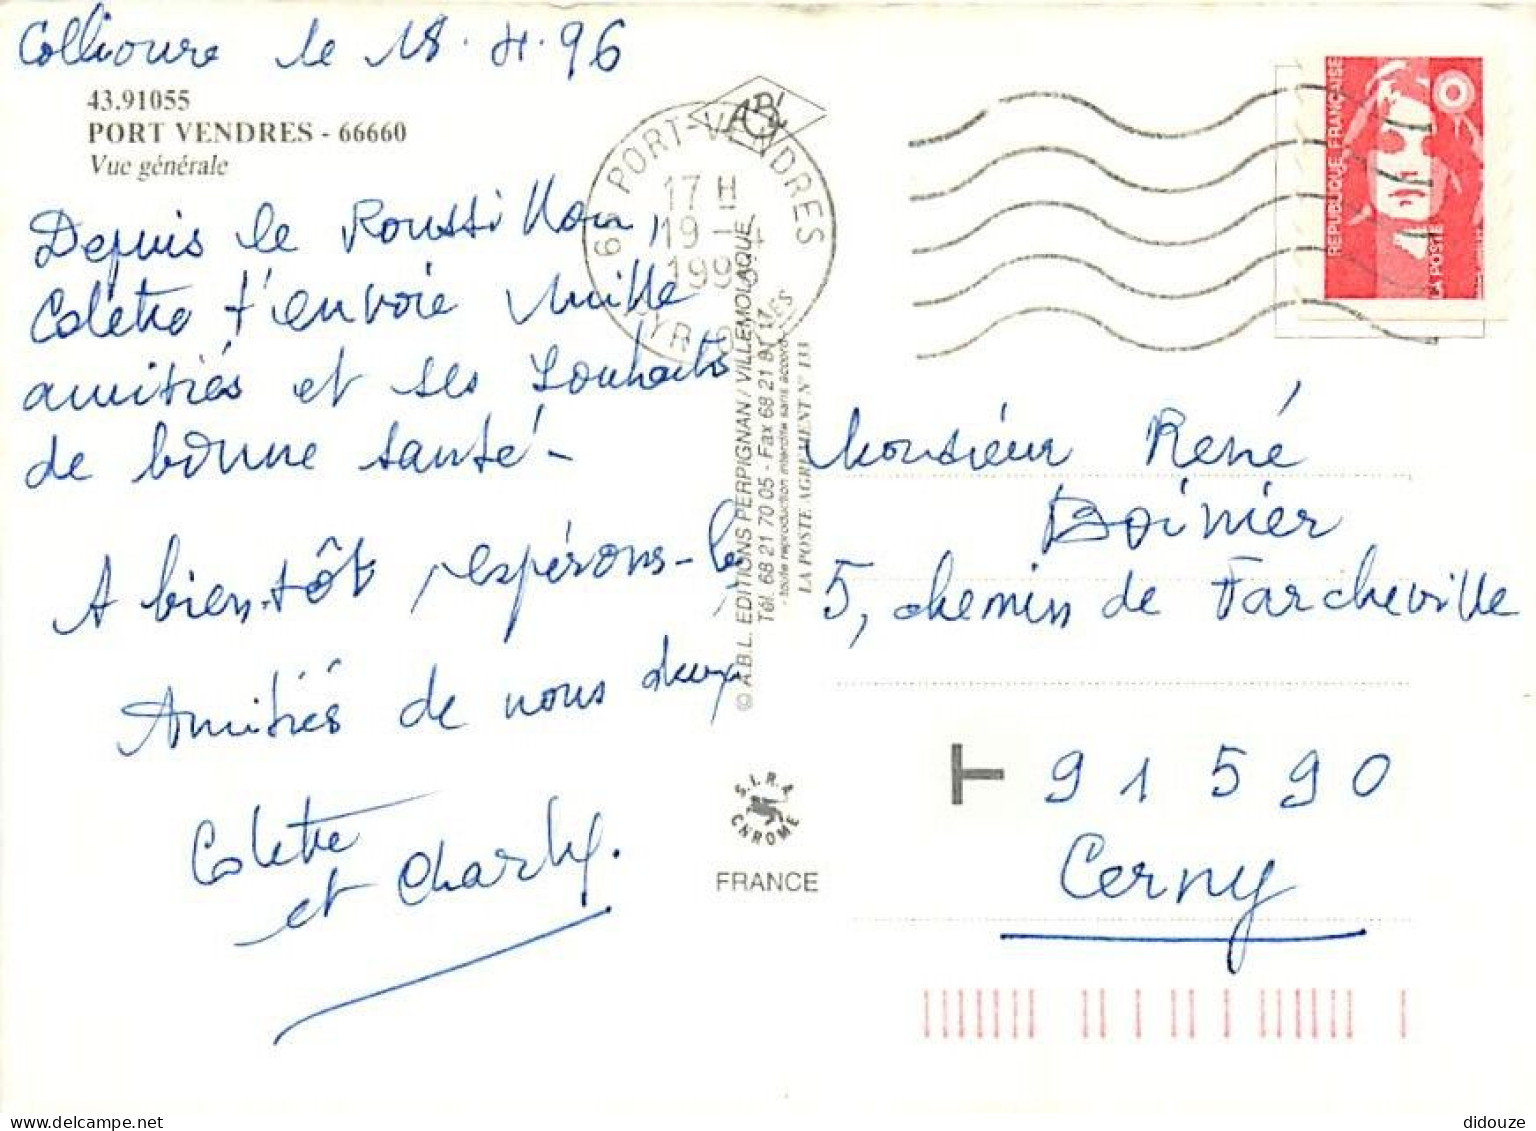 Collioure le 18.4.96
43.91055
PORT VENDRES - 66660
Vue générale
Depuis le Roussillon,
Colette t'envoie mille
amitiés et ses souhaits
de bonne santé -
A bientôt, espérons-le
Amitiés de nous deux
Colette
et Charly.
ABL
66 PORT-VENDRES
17 H
19 - 4
199
PYR. O LES
© A.B.L. EDITIONS PERPIGNAN / VILLEMOLAQUE
Tél. 68 21 70 05 - Fax 68 21 81 17
- toute reproduction interdite sans accord -
LA POSTE AGREMENT N° 133
S.I.R.A
CHROME
FRANCE
REPUBLIQUE FRANÇAISE
LA POSTE
Monsieur René
Boinier
5, chemin de Farcheville
T 91590
Cerny
didouze